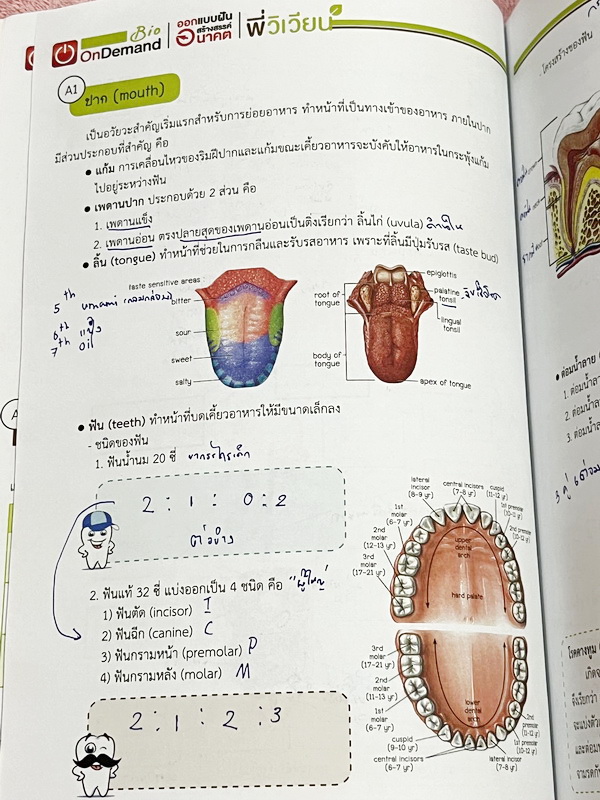 Bio
OnDemand
ออกแบบฝัน
สร้างสรรค์
อนาคต
พี่วิเวียน
A1
ปาก (mouth)
เป็นอวัยวะสำคัญเริ่มแรกสำหรับการย่อยอาหาร ทำหน้าที่เป็นทางเข้าของอาหาร ภายในปาก
มีส่วนประกอบที่สำคัญ คือ
• แก้ม การเคลื่อนไหวของริมฝีปากและแก้มขณะเคี้ยวอาหารจะบังคับให้อาหารในกระพุ้งแก้ม
ไปอยู่ระหว่างฟัน
• เพดานปาก ประกอบด้วย 2 ส่วน คือ
1. เพดานแข็ง
2. เพดานอ่อน ตรงปลายสุดของเพดานอ่อนเป็นติ่งเรียกว่า ลิ้นไก่ (uvula)
• ลิ้น (tongue) ทำหน้าที่ช่วยในการกลืนและรับรสอาหาร เพราะที่ลิ้นมีปุ่มรับรส (taste bud)
taste sensitive areas :
bitter
sour
sweet
salty
5th umami
6th แป้ง
7th oil
epiglottis
root of
tongue
palatine
tonsil
lingual
tonsil
body of
tongue
apex of tongue
• ฟัน (teeth) ทำหน้าที่บดเคี้ยวอาหารให้มีขนาดเล็กลง
- ชนิดของฟัน
1. ฟันน้ำนม 20 ซี่
2 : 1 : 0 : 2
ต่อข้าง
2. ฟันแท้ 32 ซี่ แบ่งออกเป็น 4 ชนิด คือ "ผู้ใหญ่"
1) ฟันตัด (incisor) I
2) ฟันฉีก (canine) C
3) ฟันกรามหน้า (premolar) P
4) ฟันกรามหลัง (molar) M
2 : 1 : 2 : 3
lateral
incisor
(8-9 yr)
central incisors
(7-8 yr)
cuspid
(11-12 yr)
1st premolar
(10-11 yr)
2nd premolar
(10-12 yr)
1st
molar
(6-7 yr)
2nd
molar
(12-13 yr)
3rd
molar
(17-21 yr)
upper
dental
arch
hard palate
3rd
molar
(17-21 yr)
2nd
molar
(11-13 yr)
1st
molar
(6-7 yr)
lower
dental
arch
cuspid
(9-10 yr)
central incisors
(6-7 yr)
lateral incisor
(7-8 yr)
1st premolar
(10-12 yr)
2nd
premolar
(11-12 yr)
โครงสร้างของฟัน
• ต่อมน้ำลาย
1. ต่อมน้ำ
2. ต่อมน้ำ
3. ต่อมน้ำ
โรคคางทูม